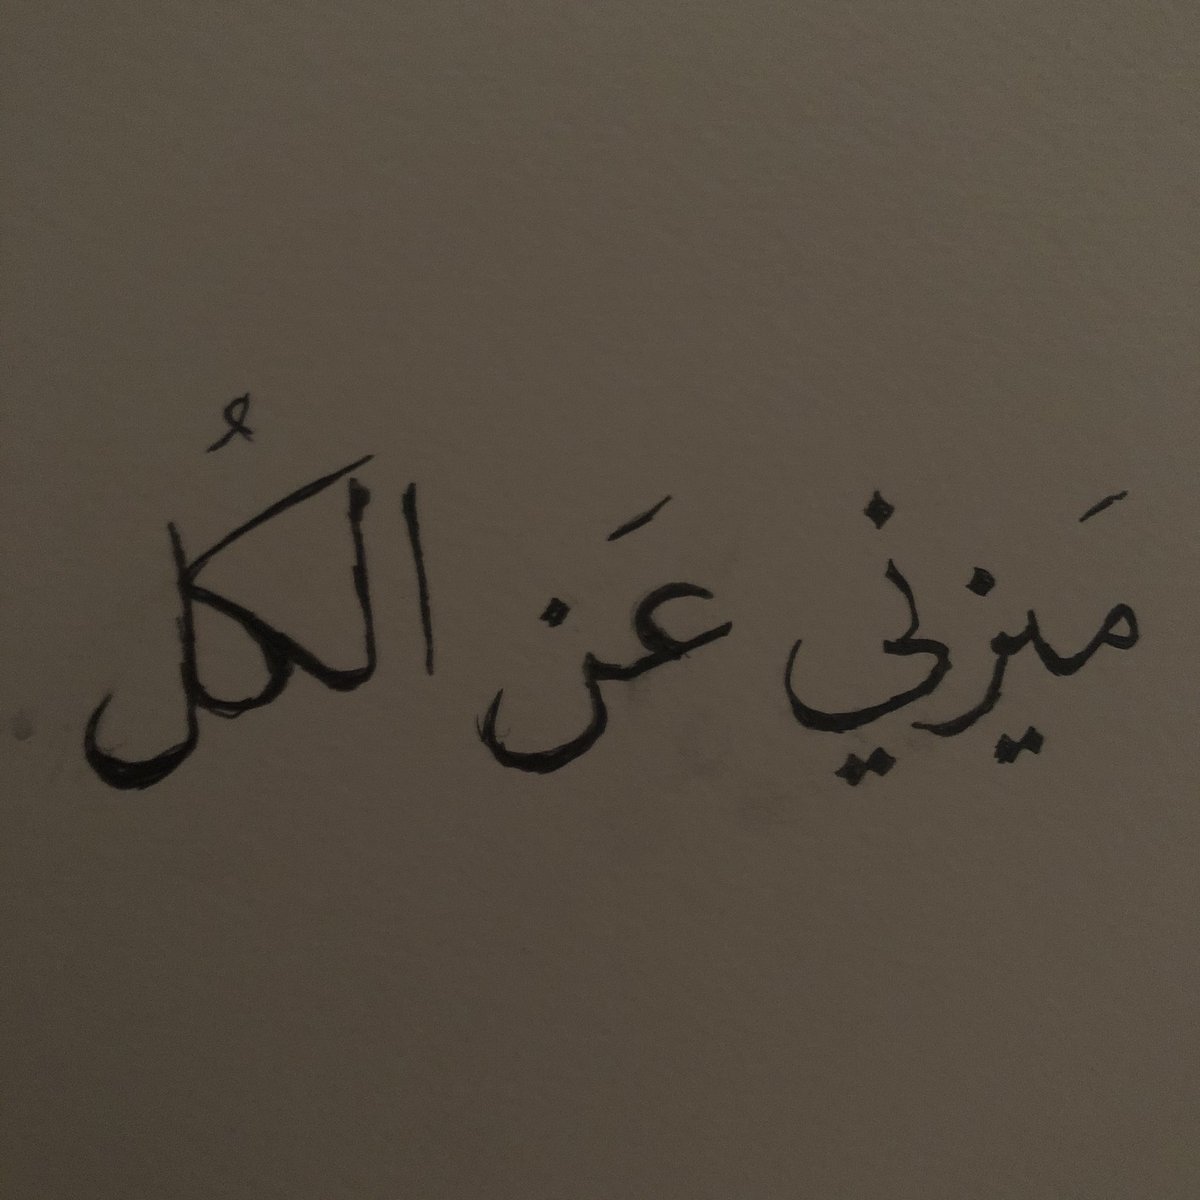 مَيزني عَن الكُل